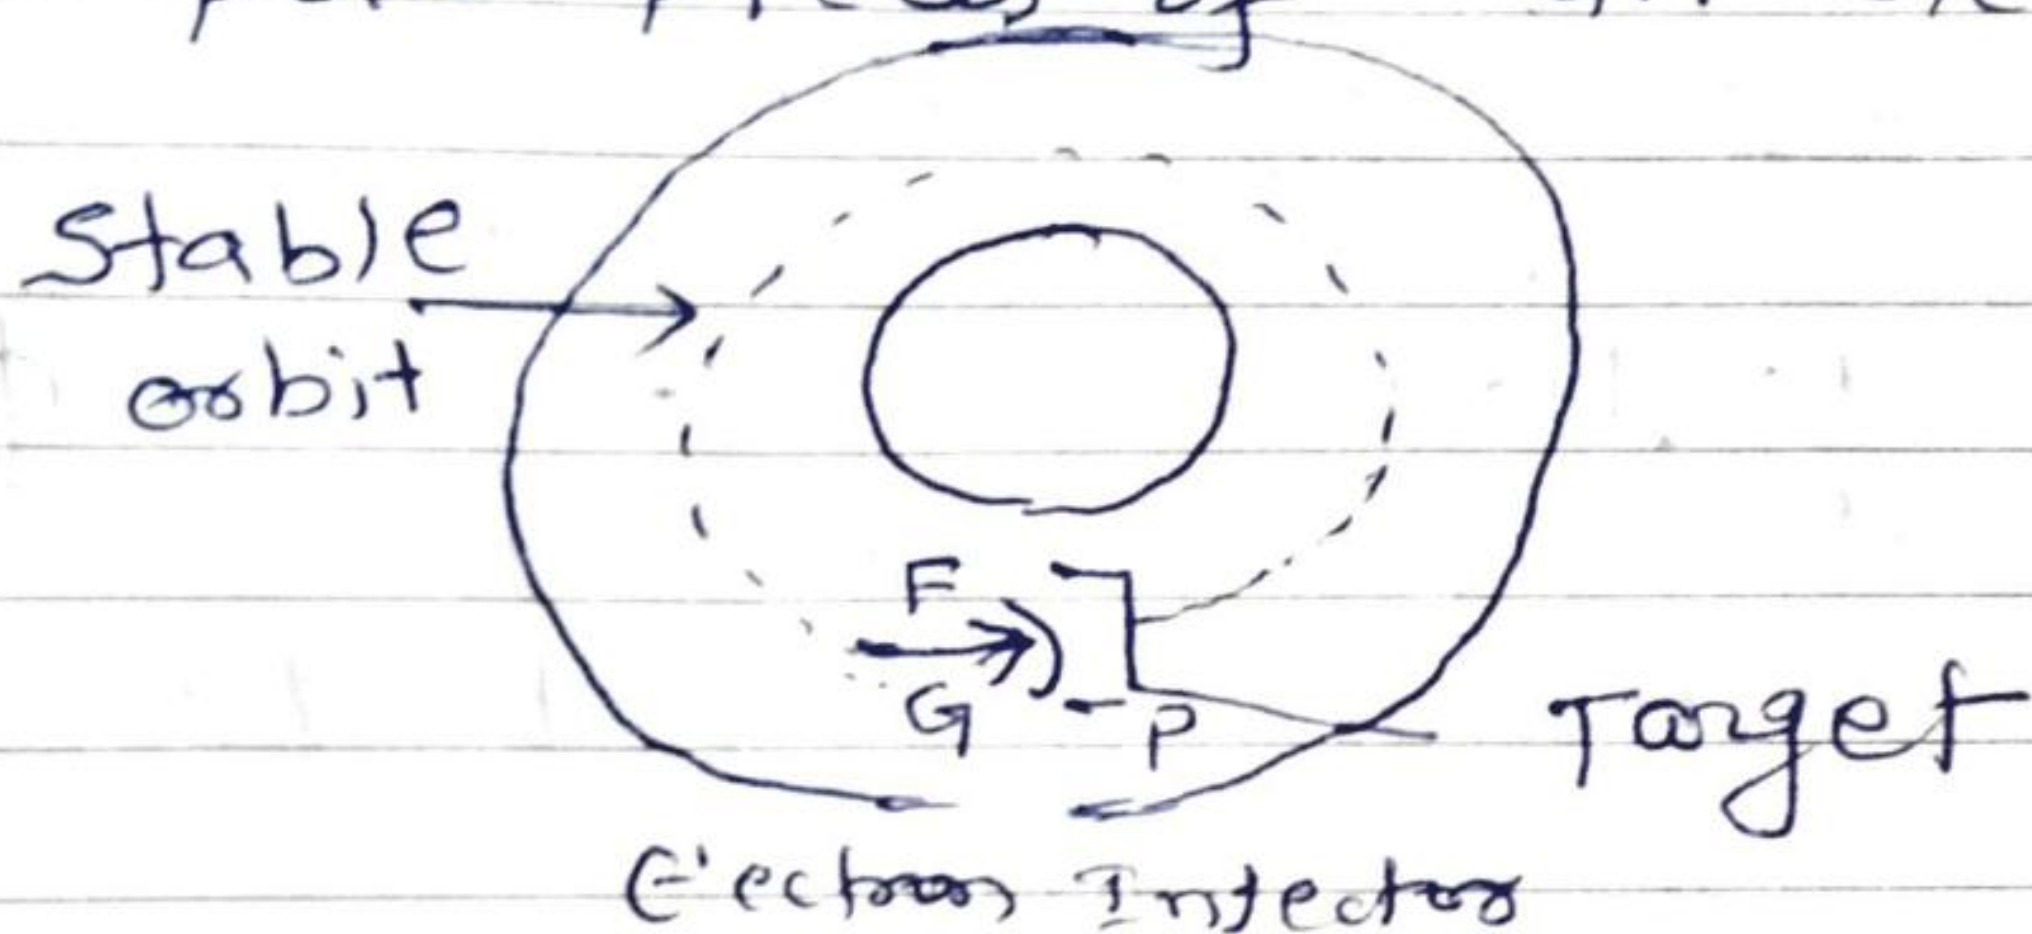 of
Stable
orbit
F
G
P
Target
Electron Injector